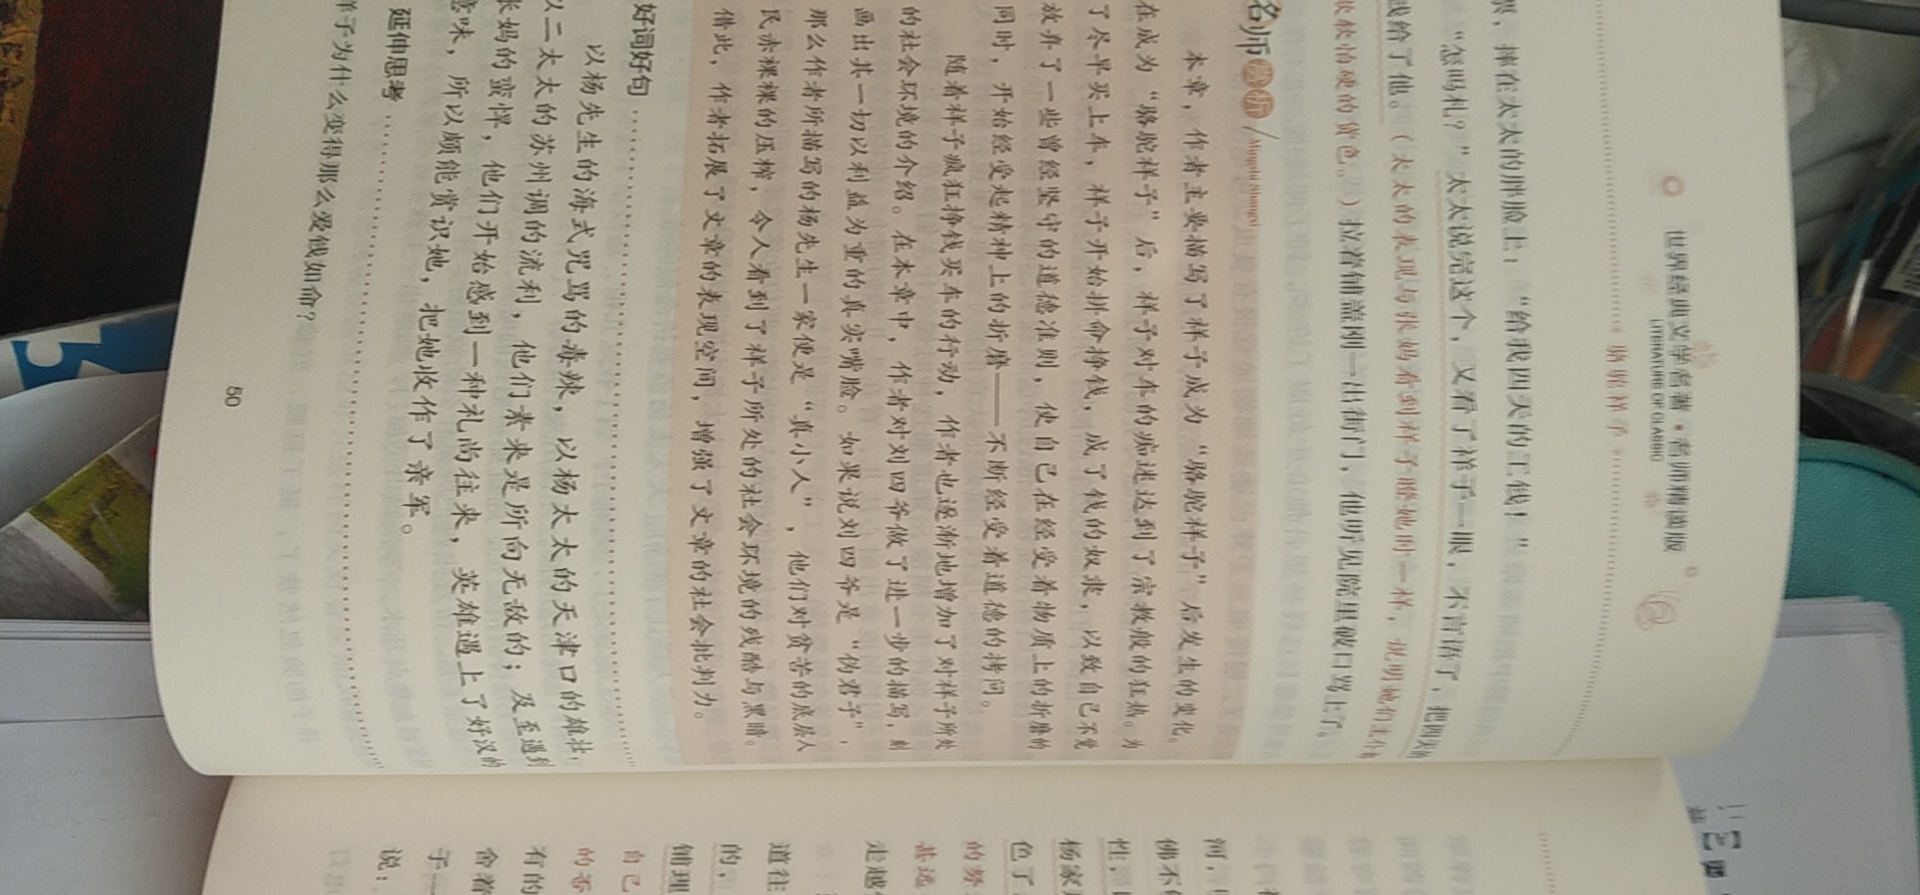 世界经典文学名著·名师精读版
LITERATURE OF CLASSIC
骆驼祥子
票，摔在太太的胖脸上：“给我四天的工钱！”
“怎吗札？”太太说完这个，又看了祥子一眼，不言语了，把四天的
钱给了他。（太太的表现与张妈看到祥子瞪她时一样，说明她们
欺软怕硬的货色。）拉着铺盖刚一出街门，他听见院里破口骂上了。
名师赏析 / Mingshi Shangxi
本章，作者主要描写了祥子成为“骆驼祥子”后发生的变化。
在成为“骆驼祥子”后，祥子对车的痴迷达到了宗教般的狂热。为
了尽早买上车，祥子开始拼命挣钱，成了钱的奴隶，以致自己不觉
放弃了一些曾经坚守的道德准则，使自己在经受着物质上的折磨的
同时，开始经受起精神上的折磨——不断经受着道德的拷问。
随着祥子疯狂挣钱买车的行动，作者也逐渐地增加了对祥子所处
的社会环境的介绍。在本章中，作者对刘四爷做了进一步的描写，刻
画出其一切以利益为重的真实嘴脸。如果说刘四爷是“伪君子”，
那么作者所描写的杨先生一家便是“真小人”，他们对贫苦的底层人
民赤裸裸的压榨，令人看到了祥子所处的社会环境的残酷与黑暗。
借此，作者拓展了文章的表现空间，增强了文章的社会批判力。
好词好句
以杨先生的海式咒骂的毒辣，以杨太太的天津口的雄壮，
以二太太的苏州调的流利，他们素来是所向无敌的；及至遇到
张妈的蛮悍，他们开始感到一种礼尚往来，英雄遇上了好汉的
意味，所以颇能赏识她，把她收作了亲军。
延伸思考
祥子为什么变得那么爱钱如命？
50
河，
佛不
性，
杨家
色了
的努
甚远
走越
道往
的，
铺理
自己
的否
有的
舍着
子一
说：